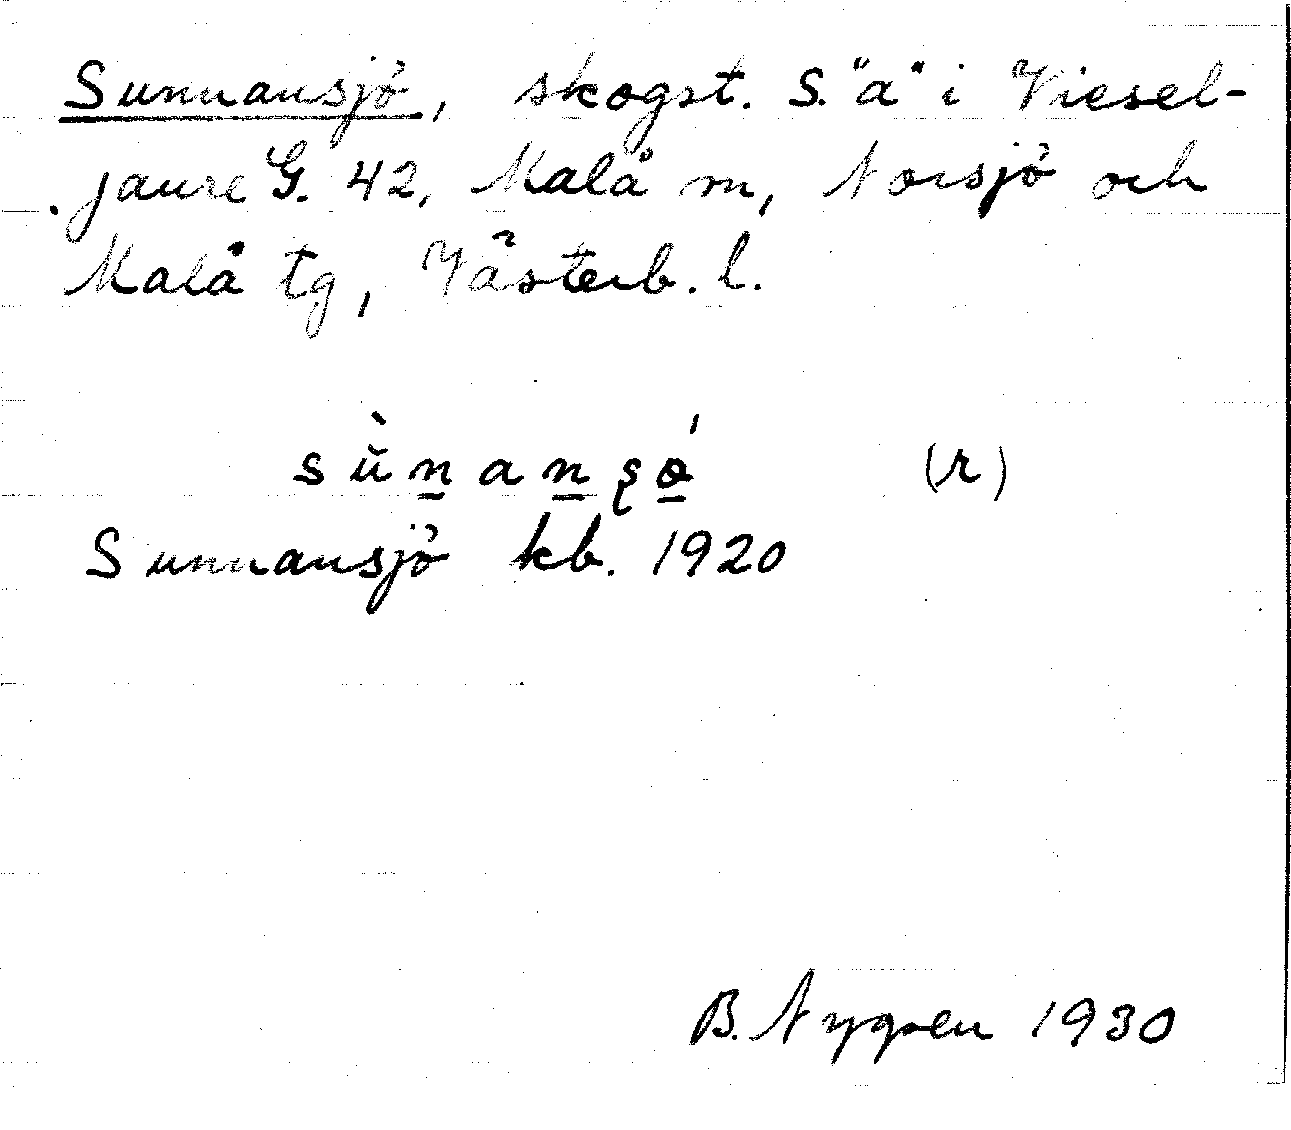 Sunnansjö, skogst. S. "a" i Viesel-
jaure G. 42, Malå m, Norsjö och
Malå tg, Västerb. l.
sù̆n̲an̲ʂǿ̲ (r)
Sunnansjö kb. 1920
B. Nygren 1930